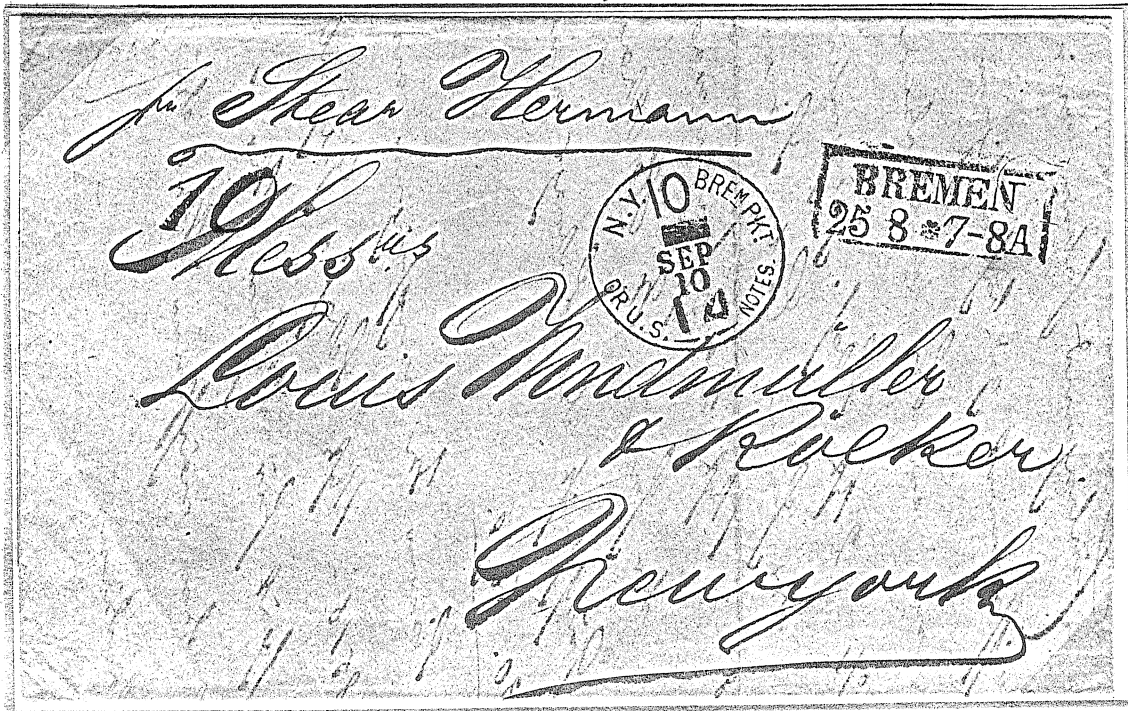 pr Stear Hermann
10
Messrs
N.Y. 10 BREM. PKT.
SEP
10
14
OR U.S. NOTES.
BREMEN
25 8 * 7-8A
Louis Windmüller
& Rölker
Newyork